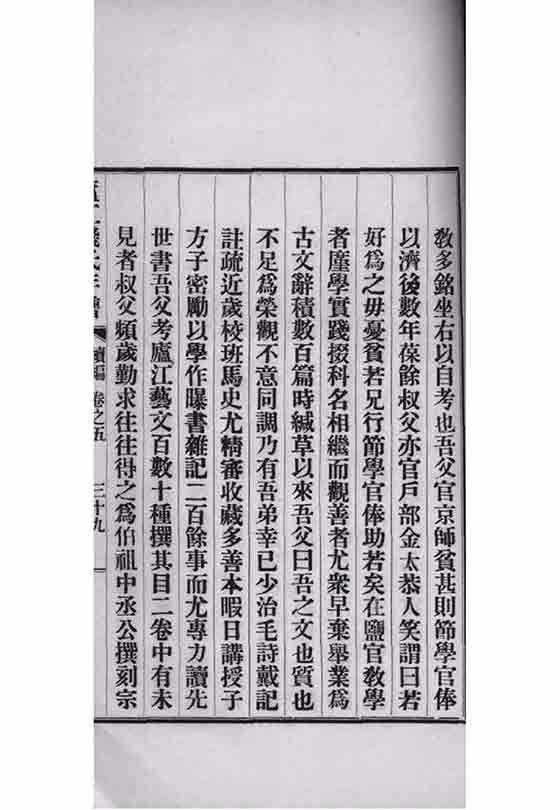 教多銘坐右以自考也吾父官京師貧甚則節學官俸
以濟後數年葆餘叔父亦官戶部金太恭人笑謂曰若
好為之毋憂貧若兄行節學官俸助若矣在鹽官敎學
者廑學實踐掇科名相繼而觀善者尤衆早棄舉業為
古文辭積數百篇時緘草以來吾父曰吾之文也質也
不足為榮觀不意同調乃有吾弟幸已少治毛詩戴記
註疏近歲校班馬史尤精審收藏多善本暇日講授子
方子密勵以學作曝書雜記二百餘事而尤專力讀先
世書吾父考廬江藝文百數十種撰其目二卷中有未
見者叔父頻歲勤求往往得之為伯祖中丞公撰刻宗
錢氏 續編 卷之五 三十九